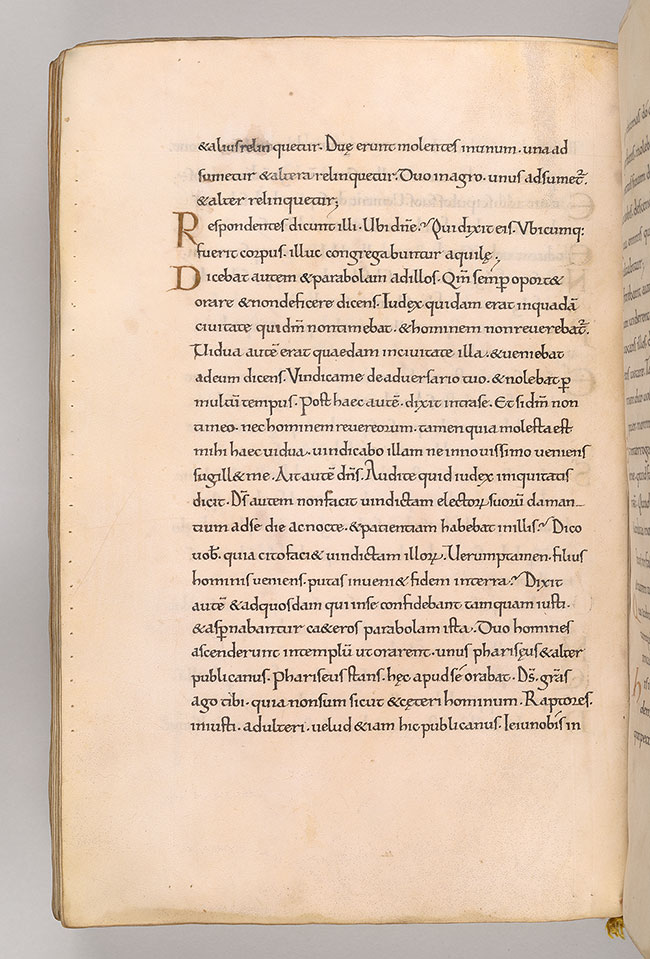 &alius relin quetur. Duę erunt molentes inunum. una ad
sumetur &altera relinquetur. Duo inagro. unus adsumet̃.
&alter relinquetur;
Respondentes dicunt illi. Ubi dñe? Qui dixit eis. Vbicumq:
fuerit corpus. illuc congregabuntur aquilę.
Dicebat autem &parabolam adillos. Qm̃ semp̱ oport&
orare &nondeficere dicens. Iudex quidam erat inquadā
ciuitate qui dm̃ nontimebat. &hominem nonreuerebat̃.
Uidua autē erat quaedam inciuitate illa. &ueniebat
adeum dicens. Vindicame deaduersario tuo. &nolebat p̱
multū tempus. Post haec autē. dixit intrase. Et si dm̃ non
timeo. nec hominem reuereorum. tamen quia molesta est
mihi haec uidua. uindicabo illam ne innouissimo ueniens
sugill& me. Ait autē dñs. Audite quid iudex iniquitatis
dicit. D̄s autem nonfacit uindictam electoꝝ suorū daman-
tium adse die ac nocte. &patientiam habebat inillis? Dico
uob̄. quia citofaci& uindictam illoꝝ. Uerumptamen. filius
hominis ueniens. putas inueni& fidem interra? Dixit
autē &adquosdam qui inse confidebant tamquam iusti.
&asp̱nabantur ca&eros parabolam ista. Duo homines
ascenderunt intemplū ut orarent. unus pharisęus &alter
publicanus. Phariseus stans. hęc apud sé orabat. D̄s. grãs
ago tibi. quia nonsum sicut &cęteri hominum. Raptores.
iniusti. adulteri. uelud &iam hic publicanus. Ieiunobis in